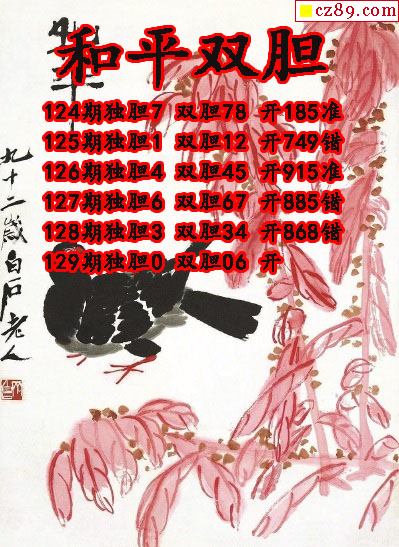 cz89.com
和平双胆
124期独胆7 双胆78 开185准
125期独胆1 双胆12 开749错
126期独胆4 双胆45 开915准
127期独胆6 双胆67 开885错
128期独胆3 双胆34 开868错
129期独胆0 双胆06 开
九十二岁白石老人